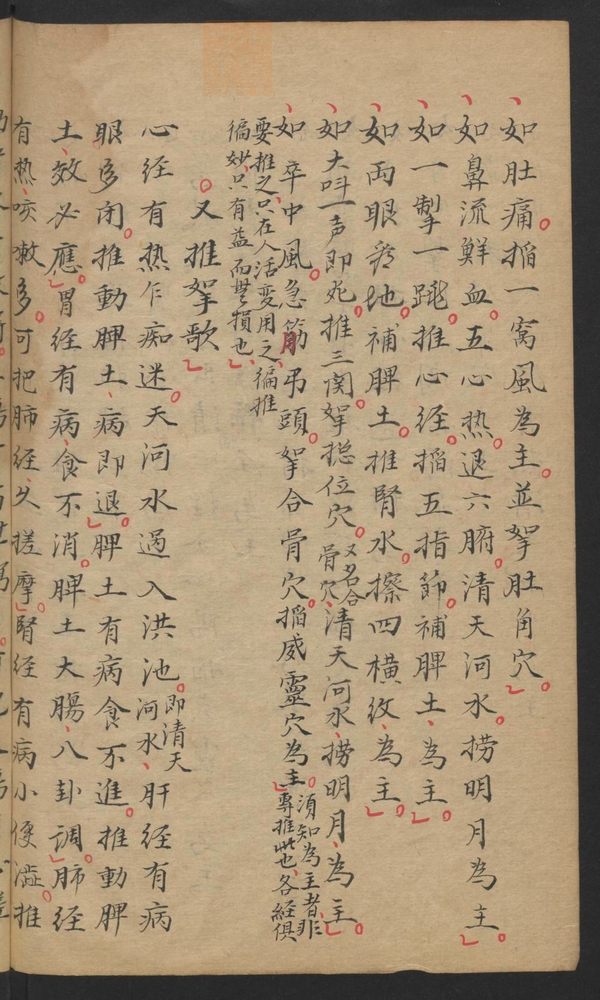 如肚痛。掐一窩風為主。並拏肚角穴。
如鼻流鮮血。五心热。退六腑。清天河水。捞明月為主。
如一掣一跳。推心経。掐五指節。補脾土、為主。
如両眼看地。補脾土。推腎水。擦四横紋、為主。
如大呌一声即死。推三関。拏捴位穴。又名合骨穴、清天河水、捞明月、為主。
如卒中風。急筋吊頭。拏合骨穴。掐威靈穴為主。須知為主者、非專推此也、各経俱
要推之、只在人活変用之、徧推
徧妙、只有益而無損也、
又推拏歌
心経有热乍痴迷。天河水過入洪池。即清天河水、肝経有病
眼多闭。推動脾土、病即退。脾土有病食不進。推動脾
土、效必應。胃経有病、食不消。脾土大腸、八卦調。肺経
有热、咳嗽多。可把肺経、久搓摩。腎経有病小便澁。推